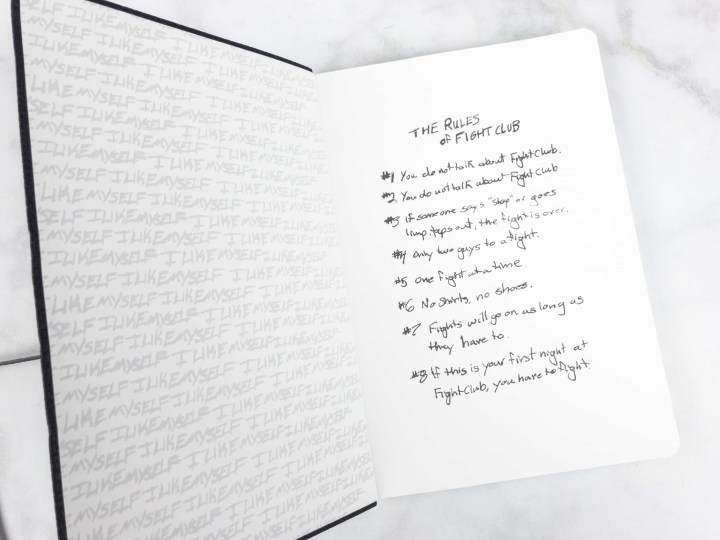 MYSELF I LIKE MYSELF I LIKE MYSELF
I LIKE MYSELF I LIKE MYSELF I LIKE MYSELF
MYSELF I LIKE MYSELF I LIKE MYSELF
I LIKE MYSELF I LIKE MYSELF I LIKE MYSELF
MYSELF I LIKE MYSELF I LIKE MYSELF
I LIKE MYSELF I LIKE MYSELF I LIKE MYSELF
MYSELF I LIKE MYSELF I LIKE MYSELF
THE RULES
OF FIGHT CLUB
#1 You do not talk about Fight Club.
#2 You do not talk about Fight Club
#3 If someone says "stop" or goes
limp, taps out, the fight is over.
#4 Only two guys to a fight.
#5 One fight at a time.
#6 No shirts, no shoes.
#7 Fights will go on as long as
they have to.
#8 If this is your first night at
Fight Club, you have to fight.